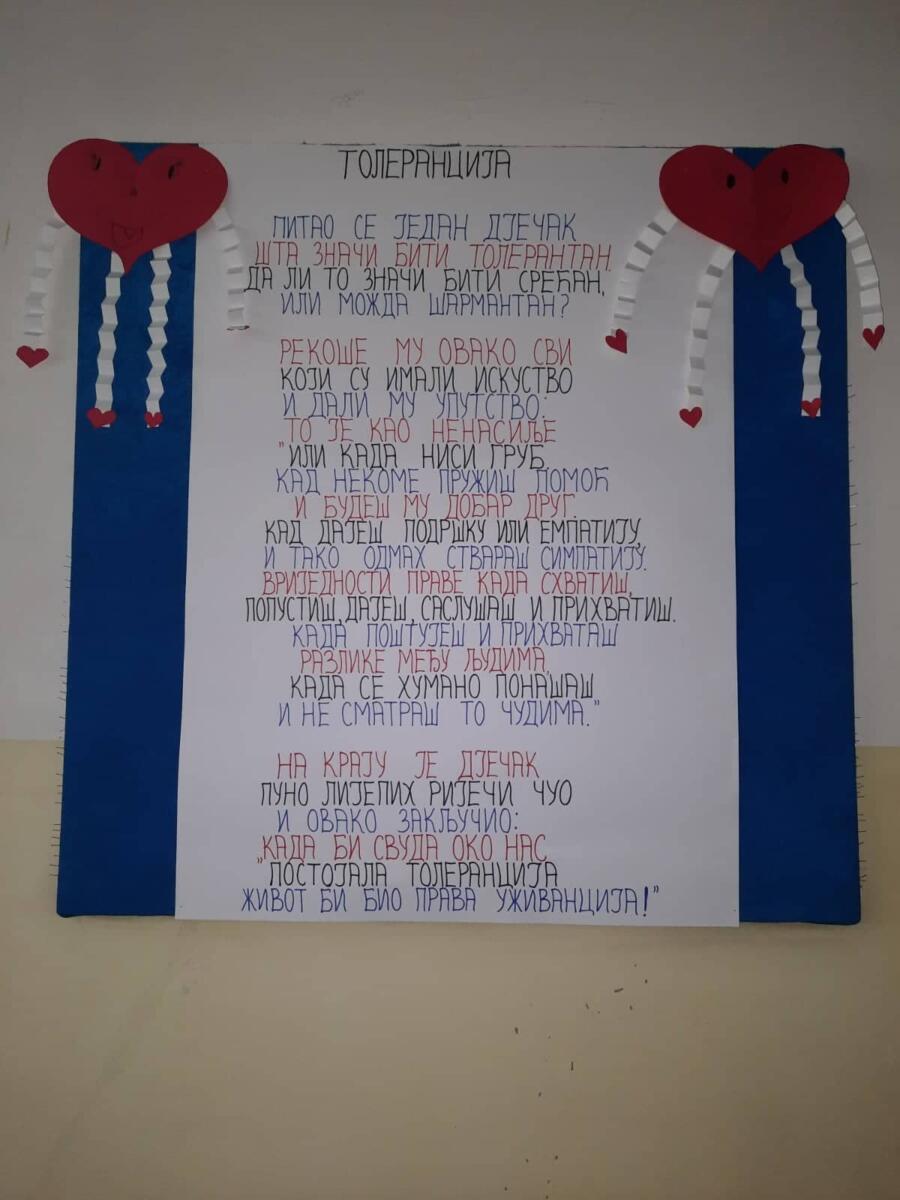 ТОЛЕРАНЦИЈА
ПИТАО СЕ ЈЕДАН ДЈЕЧАК
ШТА ЗНАЧИ БИТИ ТОЛЕРАНТАН.
ДА ЛИ ТО ЗНАЧИ БИТИ СРЕЋАН,
ИЛИ МОЖДА ШАРМАНТАН?
РЕКОШЕ МУ ОВАКО СВИ
КОЈИ СУ ИМАЛИ ИСКУСТВО
И ДАЛИ МУ УПУТСТВО:
ТО ЈЕ КАО НЕНАСИЉЕ
"ИЛИ КАДА НИСИ ГРУБ,
КАД НЕКОМЕ ПРУЖИШ ПОМОЋ
И БУДЕШ МУ ДОБАР ДРУГ.
КАД ДАЈЕШ ПОДРШКУ ИЛИ ЕМПАТИЈУ,
И ТАКО ОДМАХ СТВАРАШ СИМПАТИЈУ.
ВРИЈЕДНОСТИ ПРАВЕ КАДА СХВАТИШ,
ПОПУСТИШ, ДАЈЕШ, САСЛУШАШ И ПРИХВАТИШ.
КАДА ПОШТУЈЕШ И ПРИХВАТАШ
РАЗЛИКЕ МЕЂУ ЉУДИМА,
КАДА СЕ ХУМАНО ПОНАШАШ
И НЕ СМАТРАШ ТО ЧУДИМА."
НА КРАЈУ ЈЕ ДЈЕЧАК
ПУНО ЛИЈЕПИХ РИЈЕЧИ ЧУО
И ОВАКО ЗАКЉУЧИО:
„КАДА БИ СВУДА ОКО НАС
ПОСТОЈАЛА ТОЛЕРАНЦИЈА
ЖИВОТ БИ БИО ПРАВА УЖИВАНЦИЈА!"